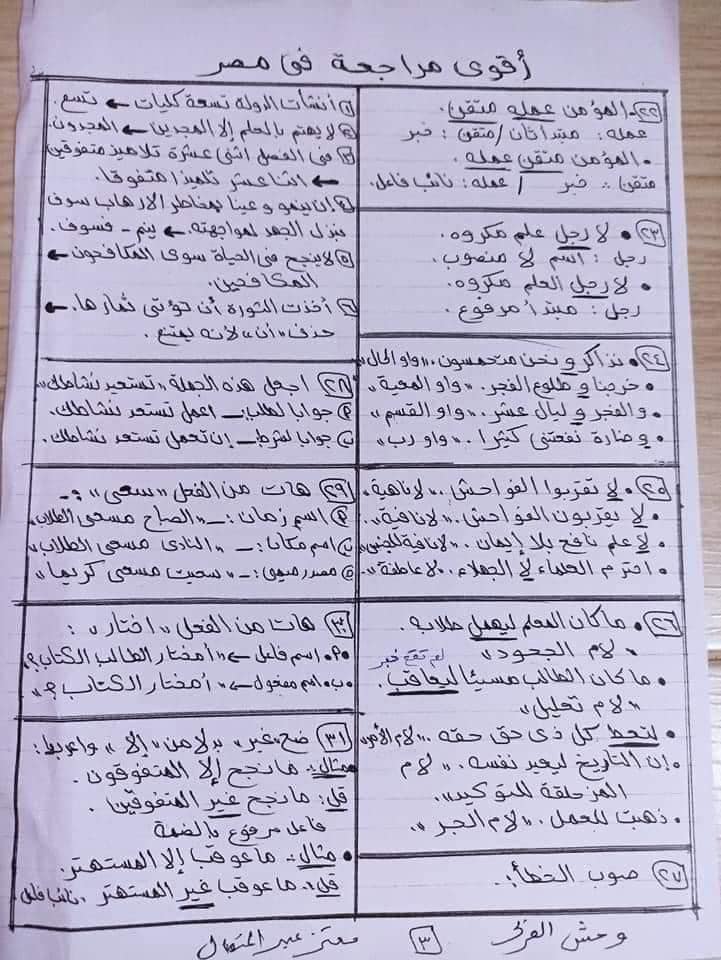 أقوى مراجعة فى مصر
٢٢ • المؤمن عمله متقن.
عمله: مبتدأ ثان / متقن: خبر
• المؤمن متقن عمله.
متقن: خبر / عمله: نائب فاعل.
٢٣ • لا رجل علم مكروه.
رجل: اسم لا منصوب.
• لا رجل العلم مكروه.
رجل: مبتدأ مرفوع.
٢٤ • نذاكر ونحن متحمسون. "واو الحال"
• خرجنا و طلوع الفجر. "واو المعية"
• والفجر و ليال عشر. "واو القسم"
• و ضارة نفعتنى كثيرا. "واو رب"
٢٥ • لا تقربوا الفواحش. "لا ناهية"
• لا يقربون الفواحش. "لا نافية".
• لا علم نافع بلا إيمان. "لا نافية للجنس"
• احترم العلماء لا الجهلاء. "لا عاطفة".
٢٦ • ما كان المعلم ليهمل طلابه.
"لام الجحود"
لم تقع خبر
• ما كان الطالب مسيئا ليعاقب.
"لام تعليل"
• لتعط كل ذى حق حقه. "لام الأمر"
• إن التاريخ ليعيد نفسه. "لام
المزحلقة للتوكيد".
• ذهبت للعمل. "لام الجر".
٢٧ • صوب الخطأ:
١ أنشأت الدولة تسعة كليات ← تسع.
٢ لا يهتم بالعلم إلا المجدين ← المجدون.
٣ فى الفصل اثنى عشرة تلاميذ متفوقين
← اثنا عشر تلميذا متفوقا.
٤ إن ينمو وعينا بمخاطر الإرهاب سوف
نبذل الجهد لمواجهته ← ينم - فسوف.
٥ لا ينجح فى الحياة سوى المكافحون ←
المكافحين.
٦ أخذت الثورة أن تؤتى ثمارها. ←
حذف "أن" لأنه يمتنع.
٢٨ اجعل هذه الجملة "تستعيد نشاطك"
أ جوابا لطلب:ـ اعمل تستعد نشاطك.
ب جوابا لشرط:ـ إن تعمل تستعد نشاطك.
٢٩ هات من الفعل "سعى":ـ
أ اسم زمان:ـ "الصباح مسعى الطلاب"
ب اسم مكان:ـ "النادى مسعى الطلاب"
ج مصدر ميمى:ـ "سعيت مسعى كريما"
٣٠ هات من الفعل "اختار":
أ. اسم فاعل ← "أمختار الطالب الكتاب؟"
ب. اسم مفعول ← "أمختار الكتاب؟"
٣١ ضع "غير" بدلا من "إلا" واعربها:
• مثال:ـ ما نجح إلا المتفوقون.
قل: ما نجح غير المتفوقين.
فاعل مرفوع بالضمة
• مثال:ـ ما عوقب إلا المستهتر.
قل: ما عوقب غير المستهتر "نائب فاعل
وحش
٣
معتز عبد المتعال